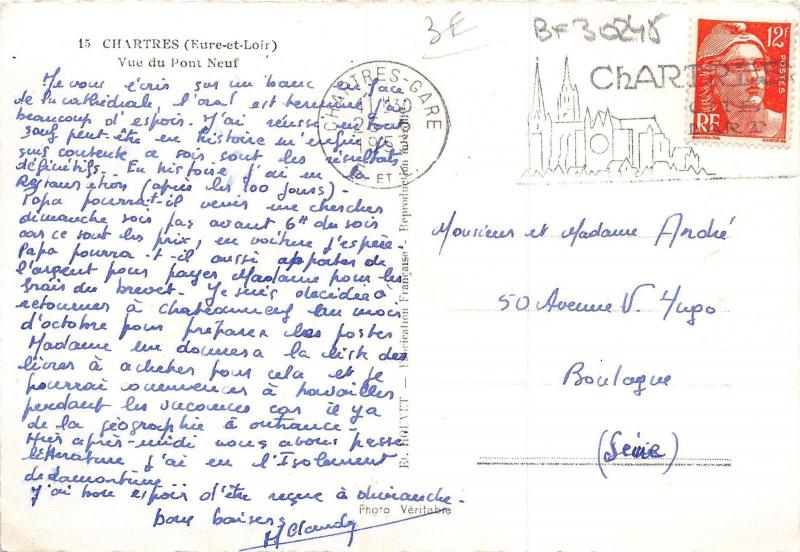 15 CHARTRES (Eure-et-Loir)
Vue du Pont Neuf
Je vous écris sur un banc en face
de la cathédrale, l'oral est terminé j'ai
beaucoup d'espoir. J'ai réussi en tout
sauf peut-être en histoire m'enfin je
suis contente ce soir sont les résultats
définitifs. En histoire j'ai eu la
Restauration (après les 100 jours).
Papa pourrait-il venir me chercher
dimanche soir pas avant 6h du soir
car ce sont les prix, en voiture j'espère.
Papa pourra-t-il aussi apporter de
l'argent pour payer Madame pour les
frais du brevet. Je suis décidée à
retourner à chateauneuf au mois
d'octobre pour préparer les postes
Madame me donnera la liste des
livres à acheter pour cela et je
pourrai commencer à travailler
pendant les vacances car il y a
de la géographie à outrance.
Hier après-midi nous avons passé
littérature j'ai eu l'Isolement
de Lamartine.
J'ai bon espoir d'être reçue à dimanche.
bons baisers
M Claude
Photo Véritable
E. HOUVET — Fabrication Française. Reproduction
3E
BF30245
CHARTRES-GARE
ET
CHARTRES
12F
POSTES
RF
Monsieur et Madame André
50 Avenue V. Hugo
Boulogne
(Seine)